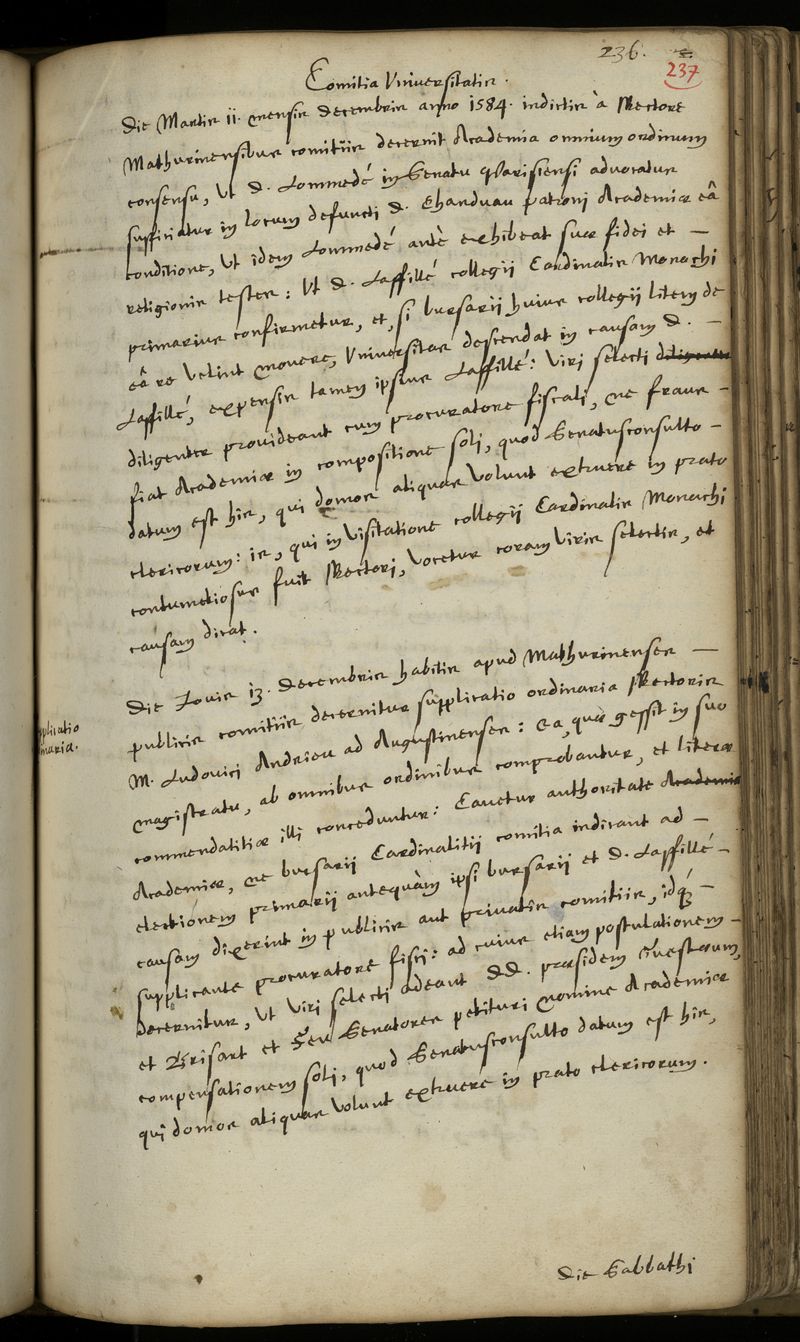 236.
237
Comitia Universitatis.
Die Martis 11. mensis decembris anno 1584. indictis à Rectore
Mathurinensibus comitiis decernit Academia omnium ordinum
consensu, ut D. Lommedé in Senatu Parisiensi advocatus
sufficiatur in locum defuncti D. Chanduau patroni Academiæ eâ
conditione, ut idem Lommedé antè exhibeat suæ fidei et —
religionis testes: Ut D. Laffillé collegij Cardinalis Monachi
primarius confirmetur, et, si bursarij huius collegij litem de
eâ re velint movere, Universitas descendat in causam D. —
Laffillé, expensis tamen ipsius Laffillé: viri selecti
diligenter provideant cum procuratore fiscali, ne fraus —
fiat Academiæ in compositione soli, quod Senatusconsulto —
datum est his, qui domos aliquas volunt extruere in prato
clericorum: is, qui in visitatione collegij Cardinalis Monachi
contumeliosus fuit Rectori, vocetur coram viris selectis, et
causam dicat.
Die Iovis 13. decembris habitis apud Mathurinenses —
publicis comitiis decernitur supplicatio ordinaria Rectoris
pplicatio
inaria.
M. Ludovici Andrieu ad Augustinenses: ea, quæ gessit in suo
magistratu, ab omnibus ordinibus comprobantur, et literæ
commendatitiæ illi conceduntur: Cauetur authoritate Academiæ
Academiæ, ne bursarij Cardinalitij comitia indicant ad —
electionem primarij antequàm ipsi bursarij et D. Laffillé —
causam dixerint in publicis aut privatis comitiis, idq́; —
supplicante procuratore fisci: ad cuius etiam postulationem —
decernitur, ut viri selecti adeant DD. præsidem Questorum,
et Brisart et Feu Senatores petituri nomine Academiæ
compensationem soli, quod Senatusconsulto datum est his,
qui domos aliquas volunt extruere in prato clericorum.
Die Sabbathi